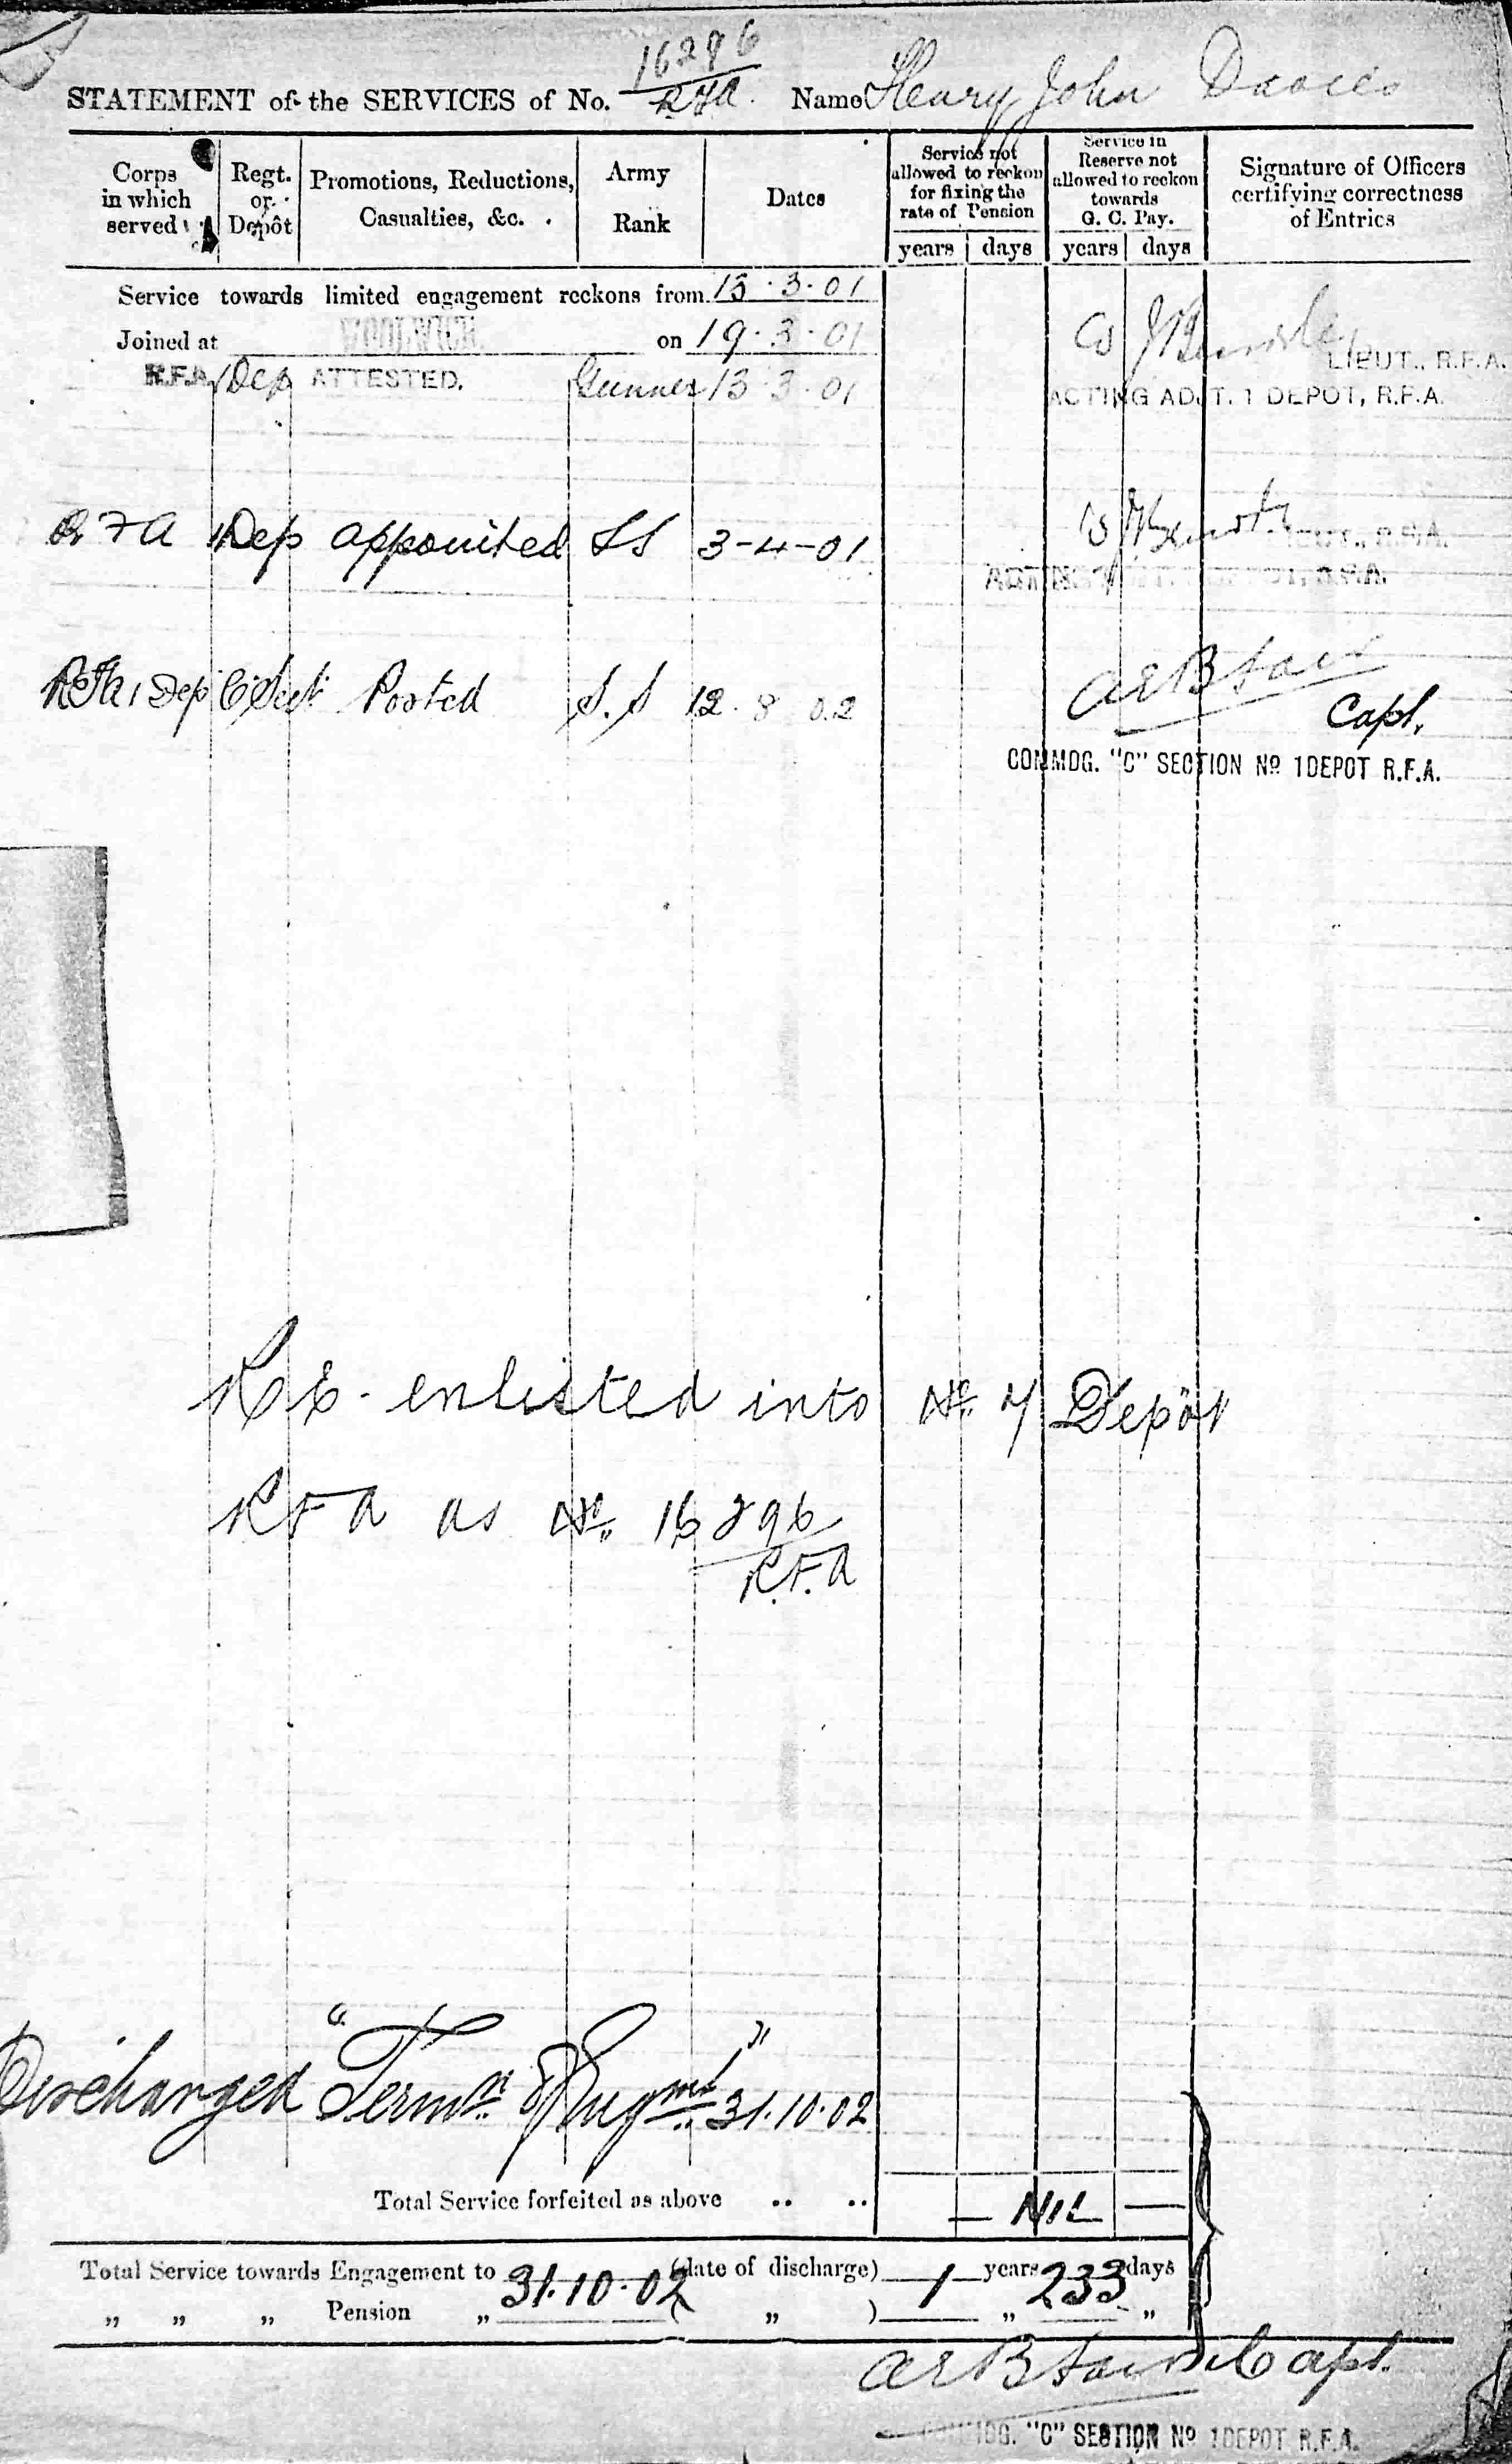 16286
R.F.A.
STATEMENT of the SERVICES of No. Name Henry John Davies
Corps in which served
Regt. or Depôt
Promotions, Reductions, Casualties, &c.
Army Rank
Dates
Service not allowed to reckon for fixing the rate of Pension
years days
Service in Reserve not allowed to reckon towards G. C. Pay.
years days
Signature of Officers certifying correctness of Entries
Service towards limited engagement reckons from 13.3.01
Joined at WOOLWICH on 19.3.01
LIEUT., R.F.A.
R.F.A. 1 Dep ATTESTED. Gunner 13.3.01
ACTING ADJT. 1 DEPOT, R.F.A.
R F A 1 Dep appointed SS 3-4-01
R.F.A.
R.F.A.
RFA 1 Dep C Sect Posted S.S 12.8.02
Capt.
COMMDG. "C" SECTION No 1 DEPOT R.F.A.
Re-enlisted into No. 7 Depôt
RFA as No. 16296
R.F.A
Discharged "Termn. of Engmt." 31.10.02
Total Service forfeited as above .. .. — NIL —
Total Service towards Engagement to 31.10.02 (date of discharge) 1 years 233 days
„ „ „ Pension „ ( „ ) „ „
Capt.
COMMDG. "C" SECTION No 1 DEPOT R.F.A.